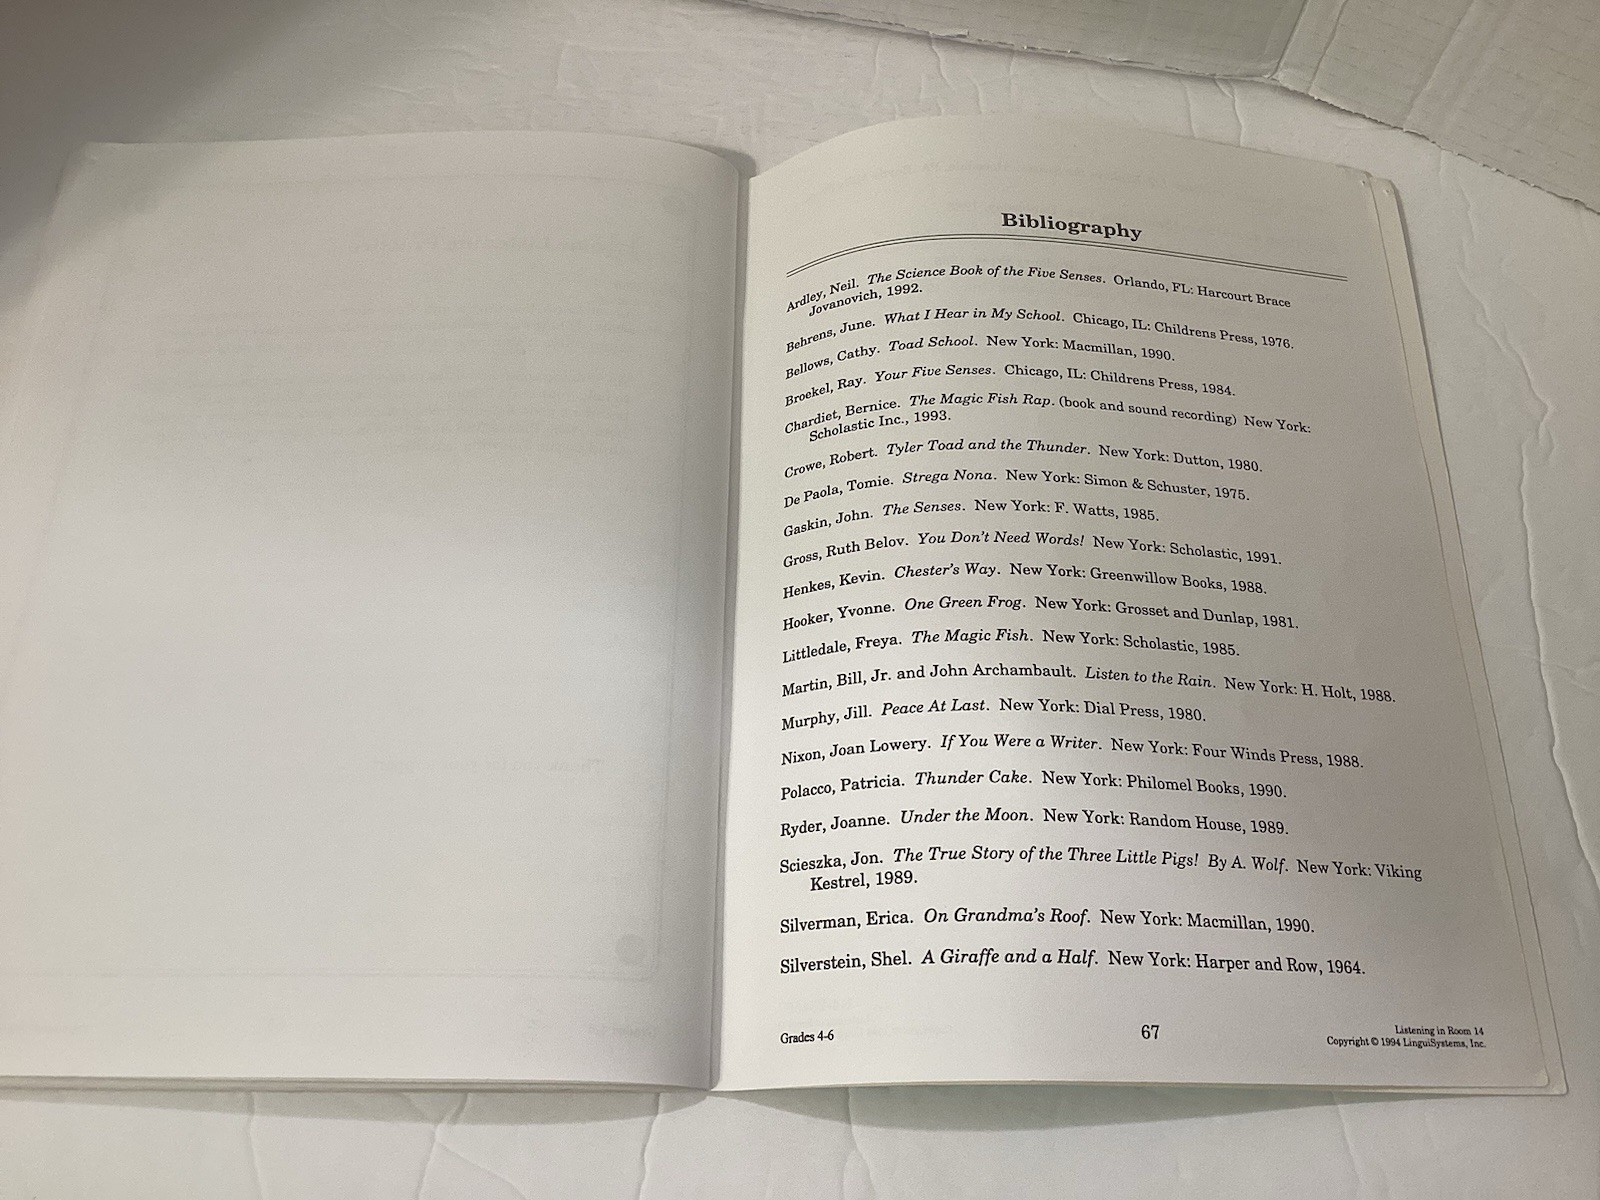 Bibliography
Ardley, Neil. The Science Book of the Five Senses. Orlando, FL: Harcourt Brace
Jovanovich, 1992.
Behrens, June. What I Hear in My School. Chicago, IL: Childrens Press, 1976.
Bellows, Cathy. Toad School. New York: Macmillan, 1990.
Broekel, Ray. Your Five Senses. Chicago, IL: Childrens Press, 1984.
Chardiet, Bernice. The Magic Fish Rap. (book and sound recording) New York:
Scholastic Inc., 1993.
Crowe, Robert. Tyler Toad and the Thunder. New York: Dutton, 1980.
De Paola, Tomie. Strega Nona. New York: Simon & Schuster, 1975.
Gaskin, John. The Senses. New York: F. Watts, 1985.
Gross, Ruth Belov. You Don't Need Words! New York: Scholastic, 1991.
Henkes, Kevin. Chester's Way. New York: Greenwillow Books, 1988.
Hooker, Yvonne. One Green Frog. New York: Grosset and Dunlap, 1981.
Littledale, Freya. The Magic Fish. New York: Scholastic, 1985.
Martin, Bill, Jr. and John Archambault. Listen to the Rain. New York: H. Holt, 1988.
Murphy, Jill. Peace At Last. New York: Dial Press, 1980.
Nixon, Joan Lowery. If You Were a Writer. New York: Four Winds Press, 1988.
Polacco, Patricia. Thunder Cake. New York: Philomel Books, 1990.
Ryder, Joanne. Under the Moon. New York: Random House, 1989.
Scieszka, Jon. The True Story of the Three Little Pigs! By A. Wolf. New York: Viking
Kestrel, 1989.
Silverman, Erica. On Grandma's Roof. New York: Macmillan, 1990.
Silverstein, Shel. A Giraffe and a Half. New York: Harper and Row, 1964.
Grades 4-6
67
Listening in Room 14
Copyright © 1994 LinguiSystems, Inc.